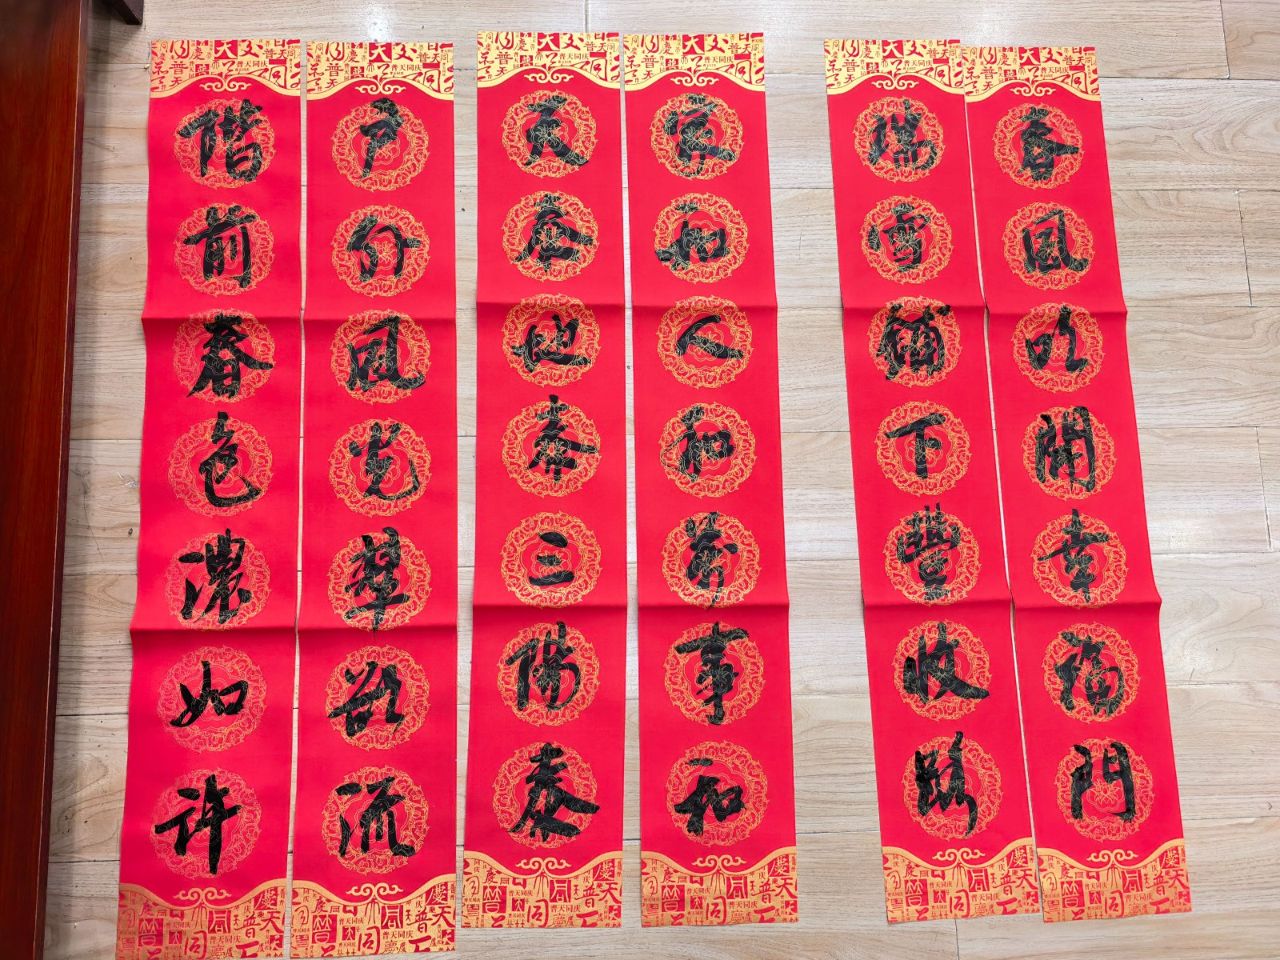 春風吹開幸福門
瑞雪鋪下豐收路
家和人和萬事和
天泰地泰三陽泰
户外風光翠欲流
階前春色濃如許
普天同庆